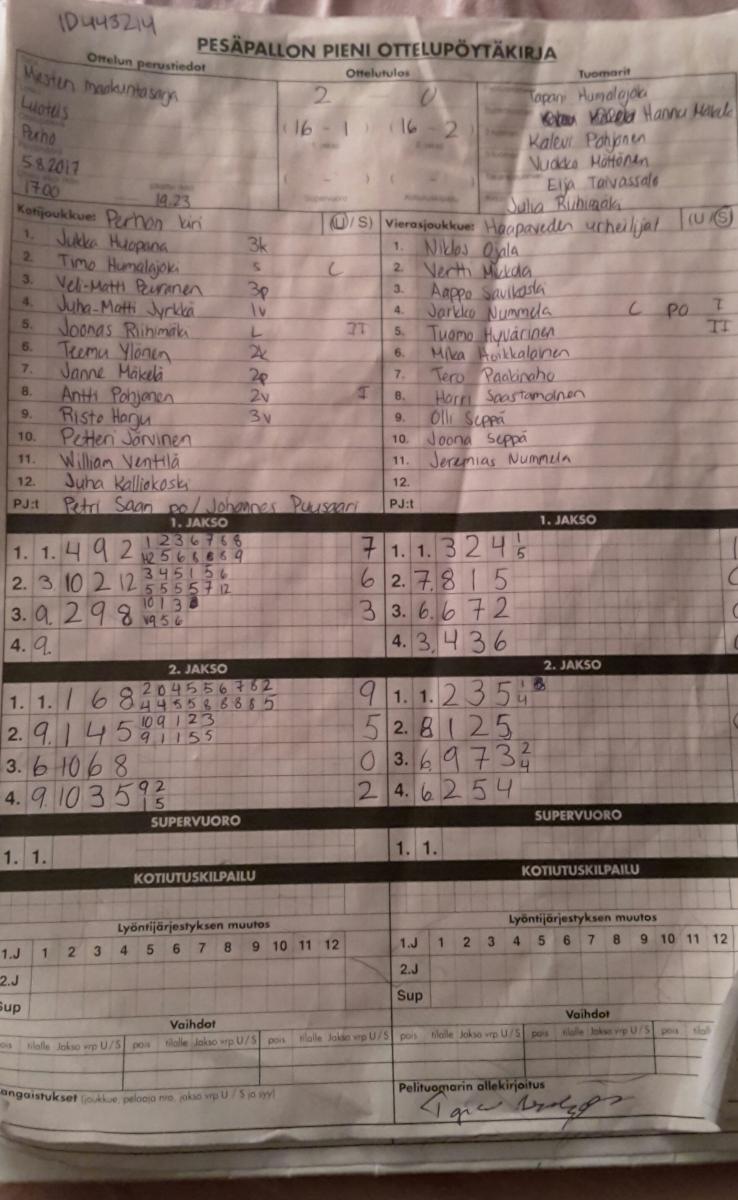 ID443214
PESÄPALLON PIENI OTTELUPÖYTÄKIRJA
Ottelun perustiedot Ottelutulos Tuomarit
Miesten maakuntasarja 2 0 Tapani Humalajoki
Luotus (16 - 1) (16 - 2) Hannu Mäkelä
Perho Kalevi Pohjonen
5.8.2017 ( - ) ( - ) Vuokko Möttönen
17.00 19.23 Eija Taivassalo
Supervuoro Julia Riihimäki
Kotijoukkue: Perhon kiri (U/S) Vierasjoukkue: Haapaveden urheilijat (U/S)
1. Jukka Huopana 3k 1. Niklas Ojala
2. Timo Humalajoki s C 2. Vertti
3. Veli-Matti Peuranen 3p 3. Aappo Savikoski
4. Juha-Matti Jyrkkä 1v 4. Jarkko Nummela C PO I
5. Joonas Riihimäki L II 5. Tuomo Hyvärinen II
6. Teemu Ylönen 2k 6. Mika Hoikkalainen
7. Janne Mäkelä 2p 7. Tero Paakinaho
8. Antti Pohjonen 2v I 8. Harri Saastamoinen
9. Risto Harju 3v 9. Olli Seppä
10. Petteri Järvinen 10. Joona Seppä
11. William Ventilä 11. Jeremias Nummela
12. Juha Kalliokoski 12.
PJ:t Petri Saari po / Johannes Puusaari PJ:t
1. JAKSO 1. JAKSO
1. 1. 4 9 2 1 2 3 6 7 8 8 7 1. 1. 3 2 4 1
12 5 6 8 8 8 9 5
2. 3 10 2 12 3 4 5 1 5 6 6 2. 7. 8 1 5
5 5 5 5 7 12
3. 9. 2 9 8 10 1 3 3 3. 6. 6 7 2
9 5 6
4. 9. 4. 3. 4 3 6
2. JAKSO 2. JAKSO
1. 1. 1 6 8 2 0 4 5 5 6 7 8 2 9 1. 1. 2 3 5 1
4 4 5 5 8 8 8 8 5 4
2. 9. 1 4 5 10 9 1 2 3 5 2. 8 1 2 5
9 1 1 5 5
3. 6 10 6 8 0 3. 6. 9 7 3 2
4
4. 9. 10 3 5 9 2 2 4. 6. 2 5 4
1 5
SUPERVUORO SUPERVUORO
1. 1. 1. 1.
KOTIUTUSKILPAILU KOTIUTUSKILPAILU
Lyöntijärjestyksen muutos Lyöntijärjestyksen muutos
1.J 1 2 3 4 5 6 7 8 9 10 11 12 1.J 1 2 3 4 5 6 7 8 9 10 11 12
2.J 2.J
Sup Sup
Vaihdot Vaihdot
pois tilalle Jakso vrp U/S pois tilalle Jakso vrp U/S pois tilalle Jakso vrp U/S pois tilalle Jakso vrp U/S pois tilalle Jakso vrp U/S pois
angaistukset (joukkue, pelaaja nro, jakso vrp U / S ja syy) Pelituomarin allekirjoitus